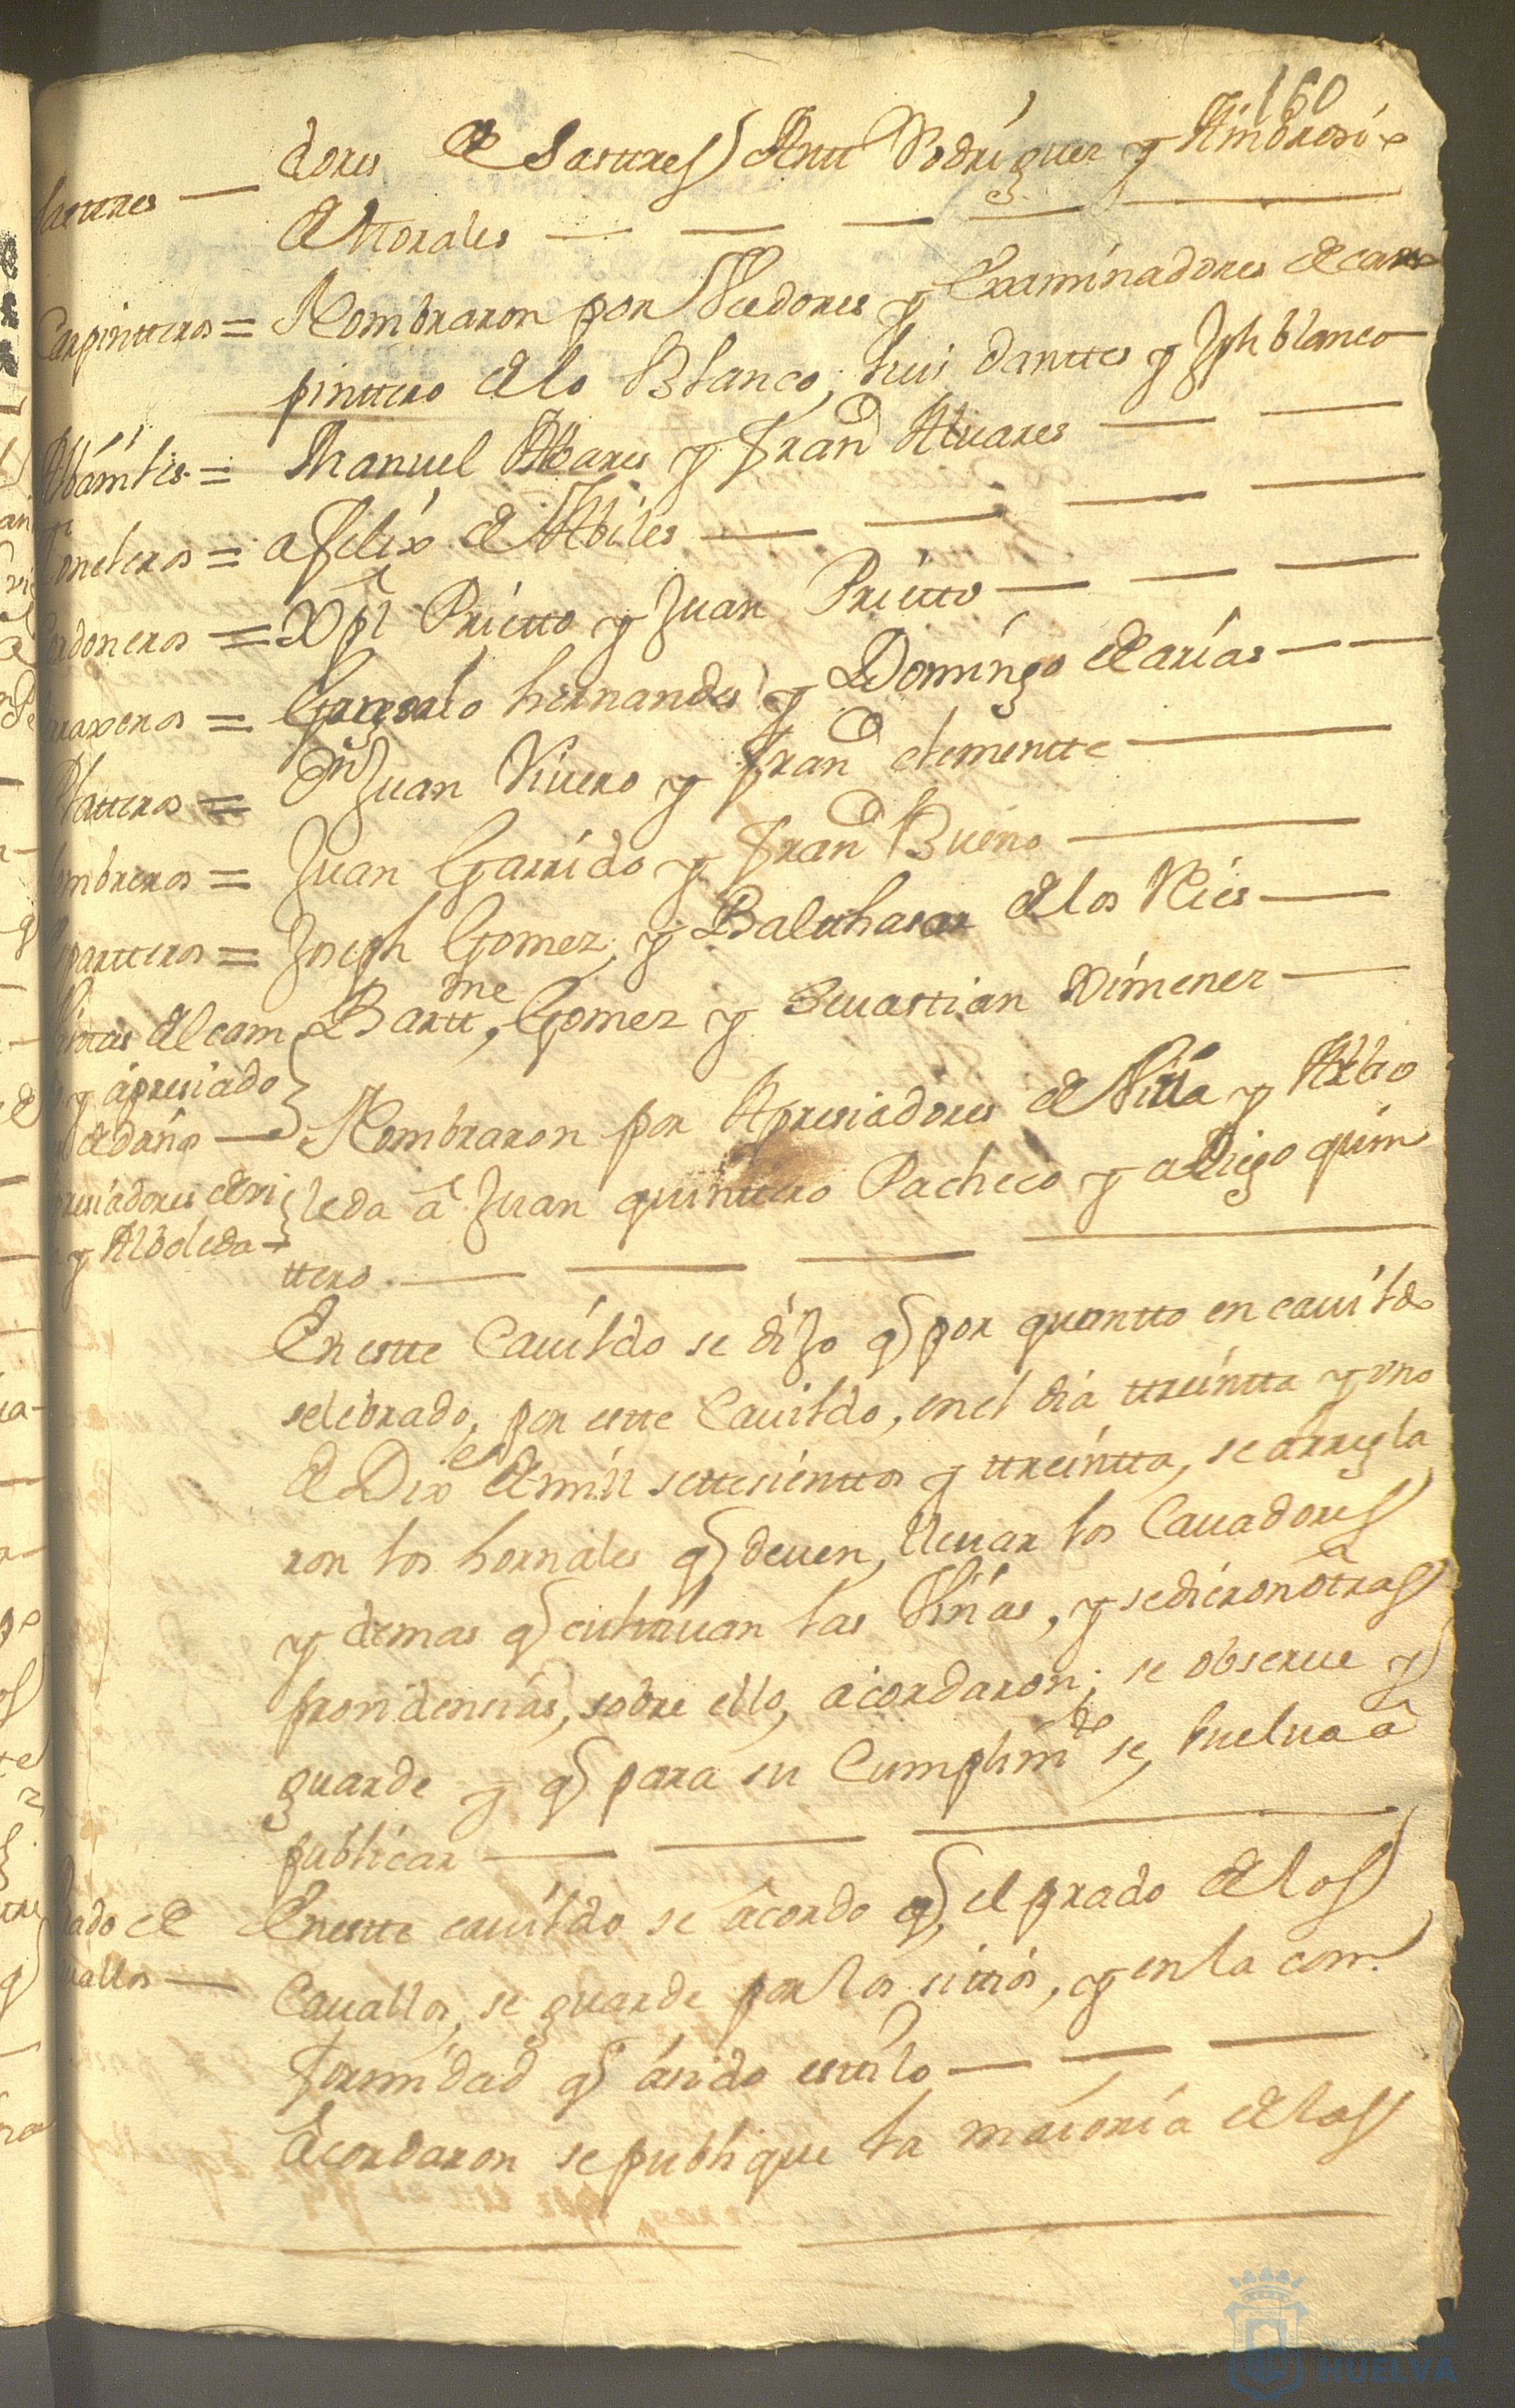 160
dores de Sastres Antt Rodriguez y Ambrosio
de Morales
Carpintteros = Nombraron por Veedores y Examinadores de car
pinttero de lo Blanco, Luis danttes y Jph blanco
Albañiles = Manuel Albares y Fran^co Albares
toneleros = a Felix de Abiles
Xpl Prietto y Juan Prietto
Gonsalo hernandes y Domingo de arias
Platteros = Dn Juan Rivero y Fran^co clementte
ombreros = Juan Garrido y Fran^co Bueno
spartteros = Joseph Gomez, y Balthasar de los Reies
de el cam Bartt^me Gomez y Sevastian Ximenez
y apresiado
de daños
Nombraron por Apresiadores de Viña y Albo
resiadores de vi
y Alboleda
leda a Juan quinttero Pacheco y a Diego quin
ttero
En estte Cavildo se dijo q por quantto en cavildo
selebrado, por estte Cavildo, en el dia ttreintta y uno
de Dix^e de mill settesienttos y ttreintta, se arregla
ron los hornales q deven, llevar los Cavadores
y demas q culttivan las Viñas, y se dieron otras
providensias, sobre ello, acordaron, se observe y
guarde y q para su Cumplim^to se, buelva a
publicar
Prado de
cavallos
En estte cavildo se acordo q, el prado de los
Cavallos, se guarde por los sittios, y en la con
formidad q a sido esttilo
Acordaron se publique la maioria de las
HUELVA